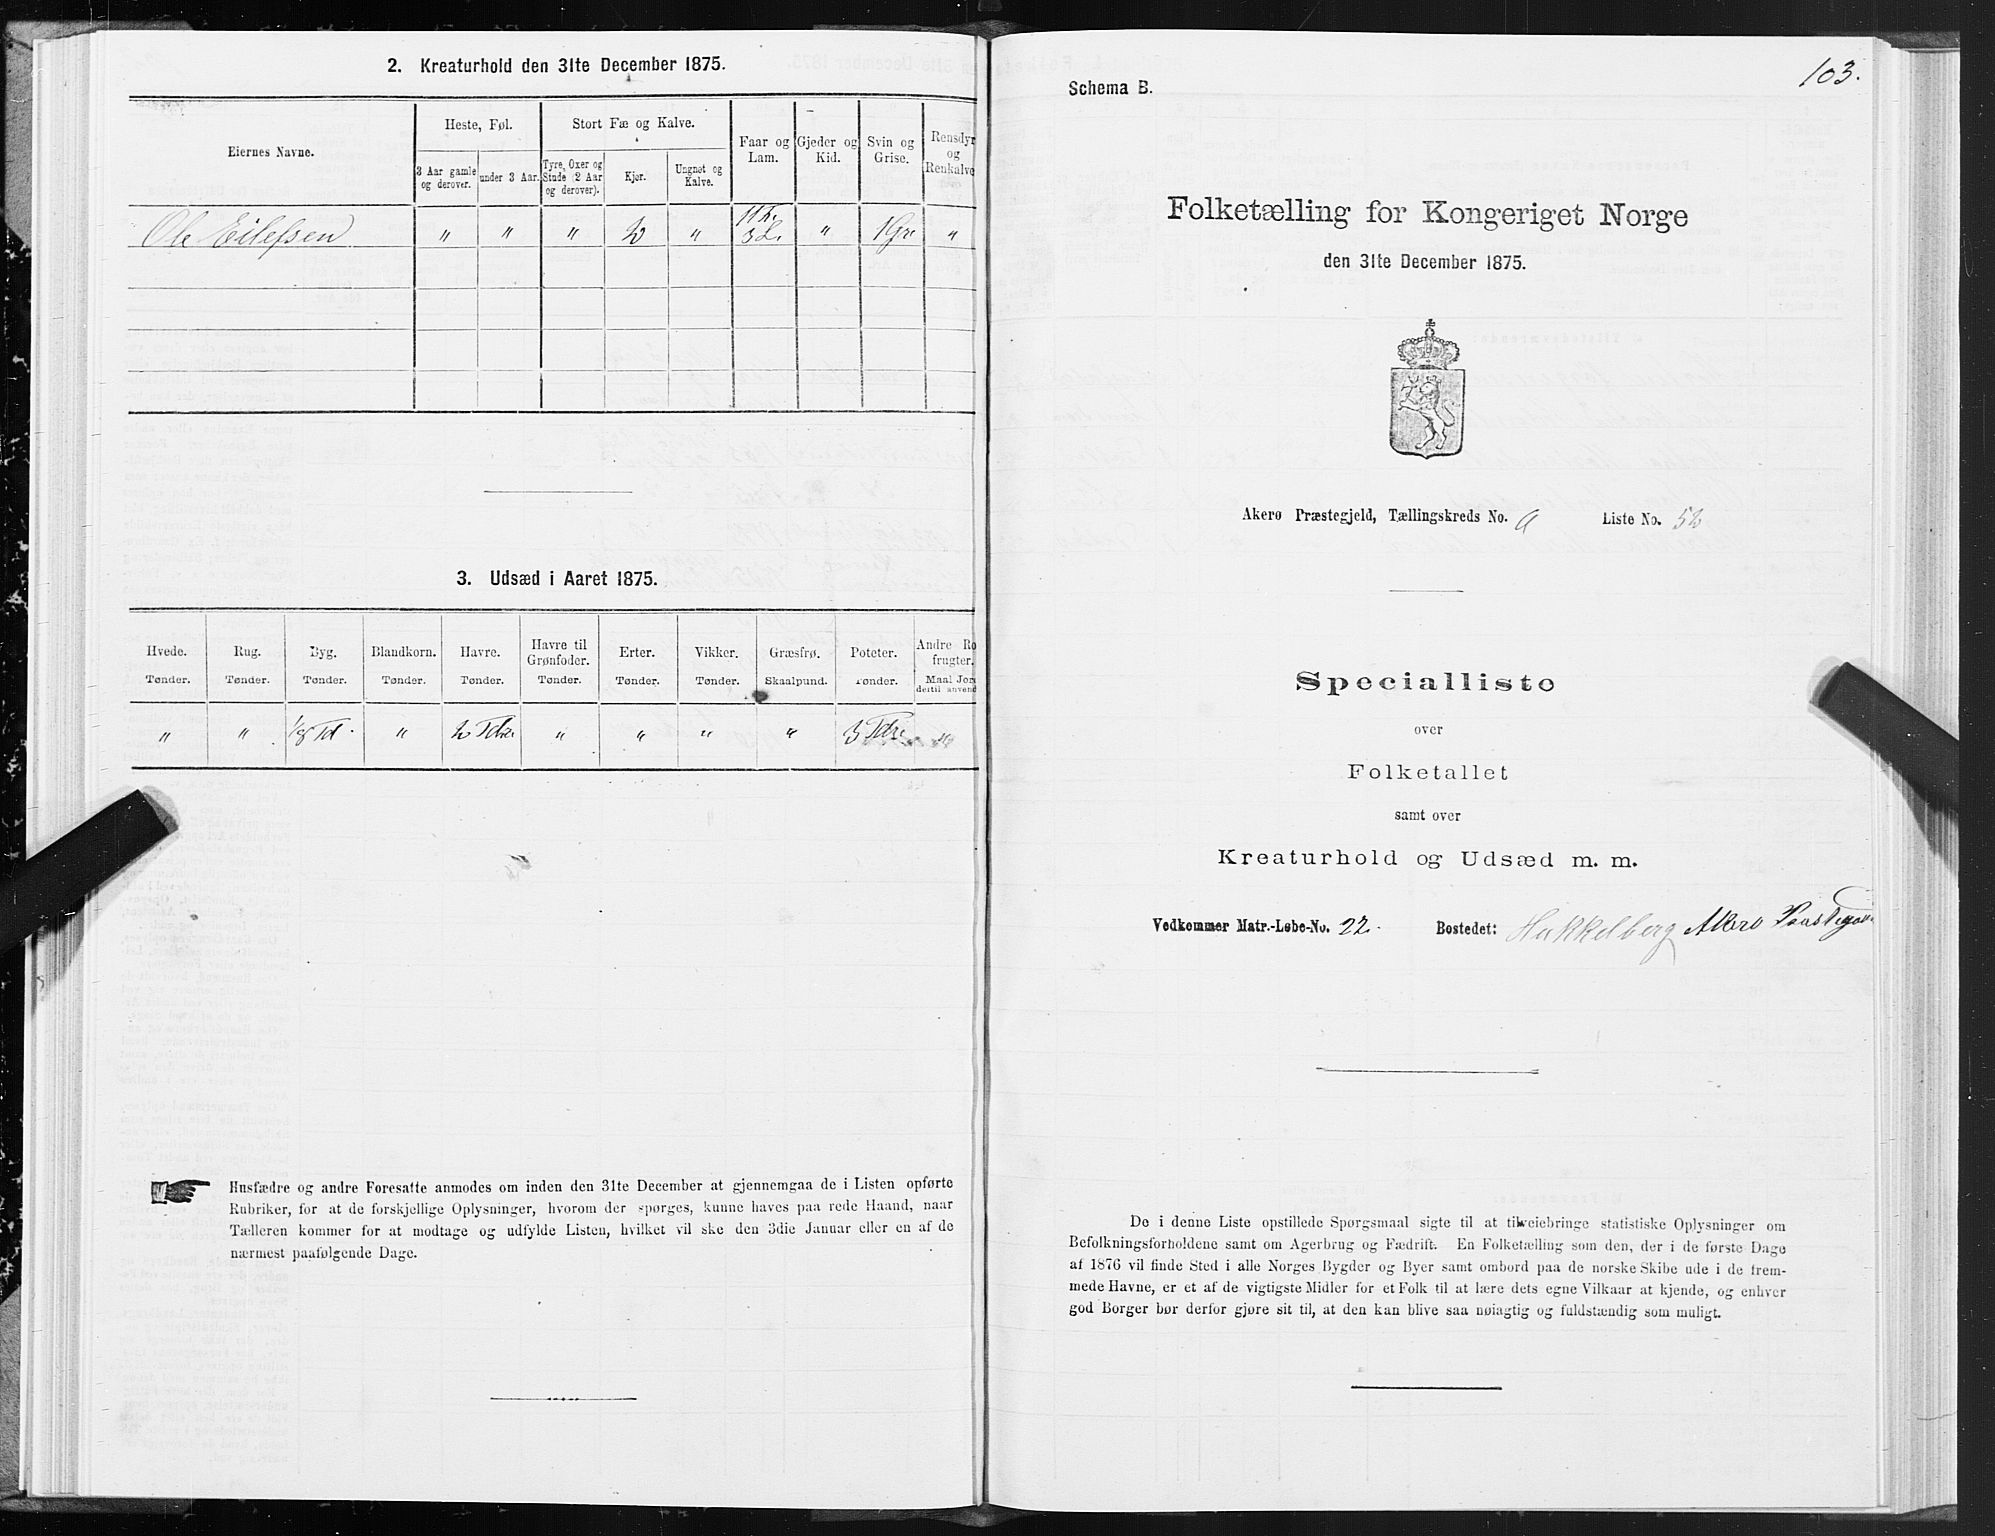 2. Kreaturhold den 31te December 1875.
Eiernes Navne.
Heste, Føl.
Stort Fæ og Kalve.
Faar og Lam.
Gjeder og Kid.
Svin og Grise.
Rensdyr og Renkalve
3 Aar gamle og derover.
under 3 Aar.
Tyre, Oxer og Stude (2 Aar og derover).
Kjør.
Ungnøt og Kalve.
Ole Eilefsen " " " 2 " 11 F. 3 L. " 1 Gr. "
3. Udsæd i Aaret 1875.
Hvede. Rug. Byg. Blandkorn. Havre. Havre til Grønfoder. Erter. Vikker. Græsfrø. Poteter. Andre Ro frugter.
Tønder. Tønder. Tønder. Tønder. Tønder. Tønder. Tønder. Tønder. Skaalpund. Tønder. Maal Jor dertil anvend
" " 1/8 Td. " 2 Tdr. " " " " 3 Tdr. "
Husfædre og andre Foresatte anmodes om inden den 31te December at gjennemgaa de i Listen opførte
Rubriker, for at de forskjellige Oplysninger, hvorom der spørges, kunne haves paa rede Haand, naar
Tælleren kommer for at modtage og udfylde Listen, hvilket vil ske den 3die Januar eller en af de
nærmest paafølgende Dage.
103.
Schema B.
Folketælling for Kongeriget Norge
den 31te December 1875.
Akerø Præstegjeld, Tællingskreds No. 9 Liste No. 52
Specialliste
over
Folketallet
samt over
Kreaturhold og Udsæd m. m.
Vedkommer Matr.-Løbe-No. 22. Bostedet: Hukkelberg Akerø
De i denne Liste opstillede Spørgsmaal sigte til at tilveiebringe statistiske Oplysninger om
Befolkningsforholdene samt om Agerbrug og Fædrift. En Folketælling som den, der i de første Dage
af 1876 vil finde Sted i alle Norges Bygder og Byer samt ombord paa de norske Skibe ude i de frem-
mede Havne, er et af de vigtigste Midler for et Folk til at lære dets egne Vilkaar at kjende, og enhver
god Borger bør derfor gjøre sit til, at den kan blive saa nøiagtig og fuldstændig som muligt.